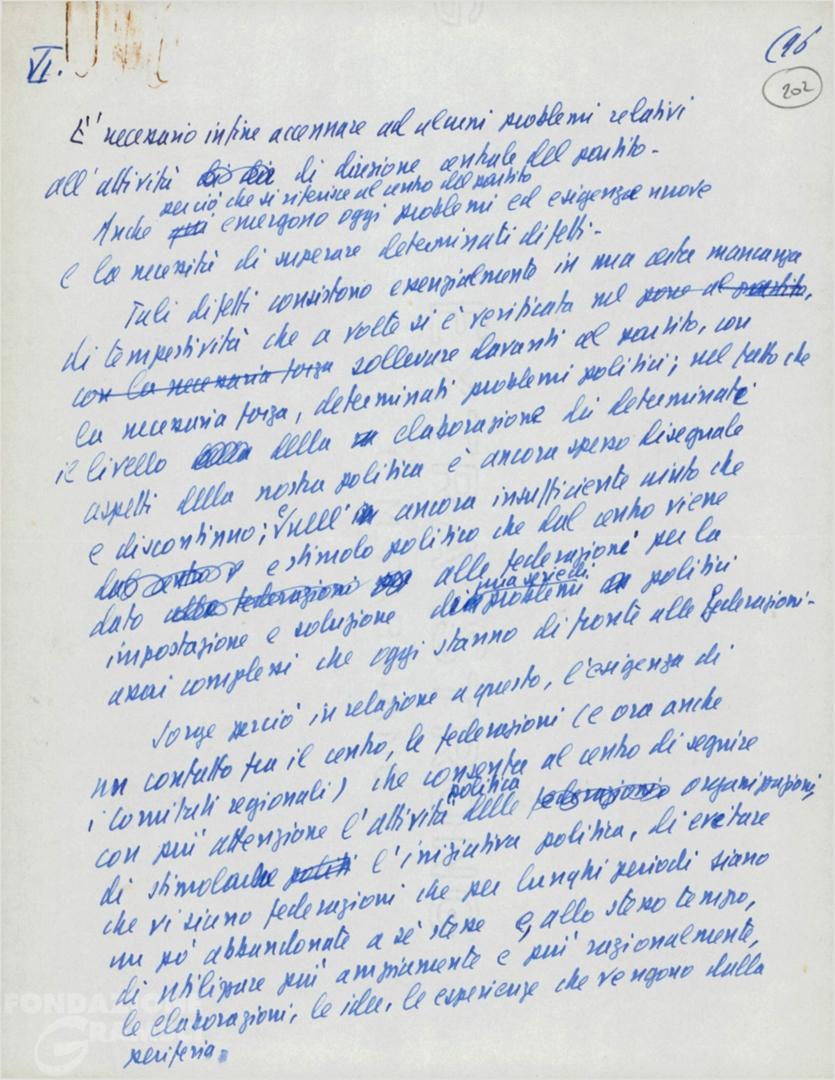 VI.
(96
202
E' necessario infine accennare ad alcuni problemi relativi
all'attività di di direzione centrale del partito -
perciò che si riferisce al centro del partito
Anche emergono oggi problemi ed esigenze nuove
e la necessità di superare determinati difetti -
Tali difetti consistono essenzialmente in una certa mancanza
di tempestività che a volte si è verificata nel porre al partito,
con la necessaria forza sollevare davanti al partito, con
la necessaria forza, determinati problemi politici; nel fatto che
il livello della della elaborazione di determinati
aspetti della nostra politica è ancora spesso diseguale
e discontinuo; e nell' ancora insufficiente aiuto che
dal centro e stimolo politico che dal centro viene
dato alle federazioni alle federazioni per la
impostazione e soluzione di una serie di problemi politici
assai complessi che oggi stanno di fronte alle Federazioni -
Sorge perciò in relazione a questo, l'esigenza di
un contatto tra il centro, le federazioni (e ora anche
i Comitati regionali) che consenta al centro di seguire
con più attenzione l'attività politica delle federazioni organizzazioni,
di stimolare l'iniziativa politica, di evitare
che vi siano federazioni che per lunghi periodi siano
un po' abbandonate a sé stesse e, allo stesso tempo,
di utilizzare più ampiamente e più razionalmente,
le elaborazioni, le idee, le esperienze che vengono dalla
periferia.
FONDAZIONE
GRAMSCI